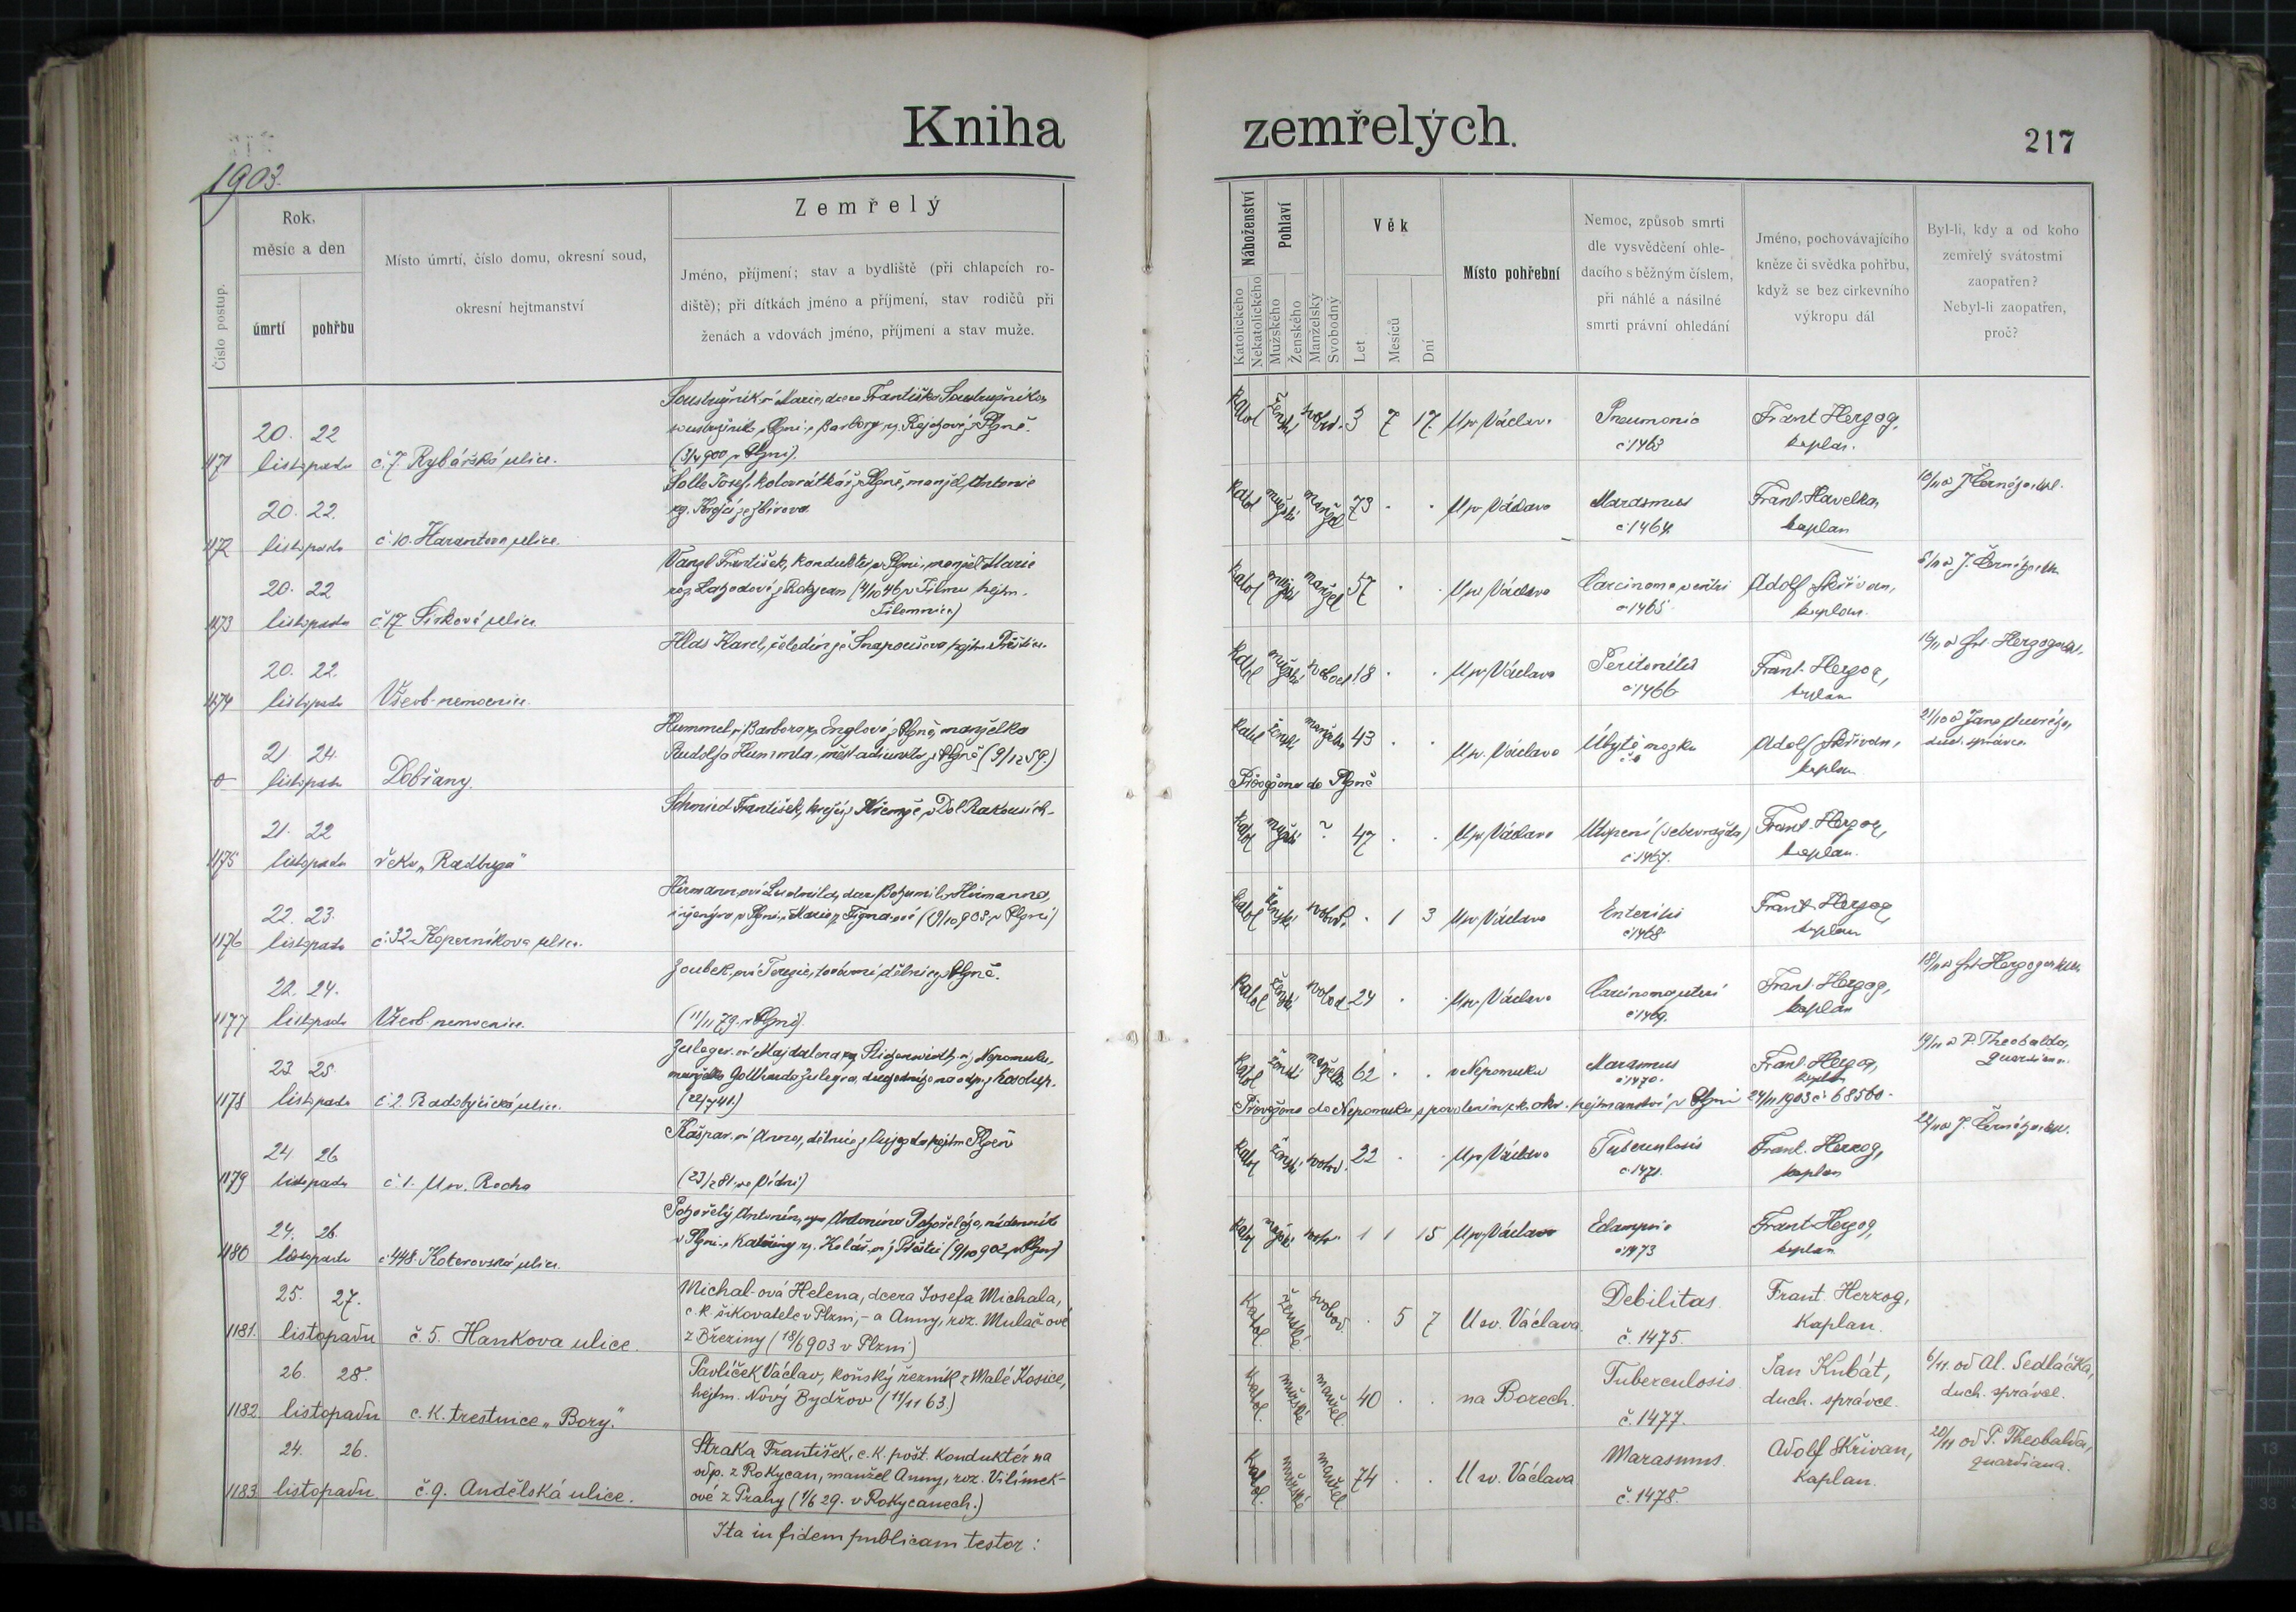 Kniha zemřelých.
217
1903.
Číslo postup.
Rok,
měsíc a den
úmrtí
pohřbu
Místo úmrtí, číslo domu, okresní soud,
okresní hejtmanství
Zemřelý
Jméno, příjmení; stav a bydliště (při chlapcích ro-
diště); při dítkách jméno a příjmení, stav rodičů při
ženách a vdovách jméno, příjmení a stav muže.
Náboženství
Katolického
Nekatolického
Pohlaví
Mužského
Ženského
Manželský
Svobodný
Věk
Let
Mesíců
Dní
Místo pohřební
Nemoc, způsob smrti
dle vysvědčení ohle-
dacího s běžným číslem,
při náhlé a násilné
smrti právní ohledání
Jméno, pochovávajícího
kněze či svědka pohřbu,
když se bez cirkevního
výkropu dál
Byl-li, kdy a od koho
zemřelý svátostmi
zaopatřen?
Nebyl-li zaopatřen,
proč?
1171 20. 22 listopadu č. 7. Rybářská ulice.
Marie, dcera Františka
(3/4 900 v Plzni).
Katol ženské svobod. 3 7 17. U sv. Václava
Pneumonie č 1463
Frant Herzog, kaplan.
1172 20. 22. listopadu č. 10. Harantova ulice.
Josef, z Plzně, manžel Antonie
roz. Krejčí ze Zbirova
Katol mužské manžel 73 . . U sv. Václava
Marasmus č 1464
Frant. Havelka, kaplan
1173 20. 22 listopadu č. 17
František, kondukter v Plzni, manžel Marie
z Rokycan (4/10 46 v
Katol mužské manžel 57 . . U sv. Václava
Carcinoma č 1465
Adolf Skřivan, kaplan.
1174 20. 22. listopadu Všeob. nemocnice.
Hlas Karel, čeledín ze Snopoušova hejtm. Přeštice.
Katol mužské svobod. 18 . . U sv. Václava
Peritonitis č 1466
Frant. Herzog, kaplan
0 21 24. listopadu Dobřany.
Hummel-ová Barbora, roz. Englová z Plzně, manželka
Rudolfa Hummla, z Plzně (9/12 59.)
Katol ženské manželka 43 . . U sv. Václava
Úbytě mozku
Adolf Skřivan, kaplan
duch. správce.
Převezena do Plzně
1175 21. 22 listopadu řeka „Radbuza“
Schmied František, krejčí z Křemže, v Dol. Rakousích.
Katol mužské ? 47 . . U sv. Václava
Utopení (sebevražda) č 1467.
Frant. Herzog, kaplan.
1176 22. 23. listopadu č. 32 Koperníkova ulice.
Hirmann-ová Ludmila, dcera Bohumila Hirmanna,
inženýra v Plzni, (19/10 903 v Plzni)
Katol ženské svobod. . 1 3 U sv. Václava
Enteritis č 1468
Frant. Herzog, kaplan
1177 22. 24. listopadu Všeob. nemocnice.
Zoubek-ová Terezie, tovární dělnice z Plzně.
(11/11 79. v Plzni).
Katol ženské svobod. 24 . . U sv. Václava
Carcinoma uteri č 1469.
Frant. Herzog, kaplan
1178 23 25. listopadu č. 2. Radobyčická ulice.
Majdalena z Nepomuku,
manželka Gottharda
(22/7 41.)
Katol ženské manželka 62 . . v Nepomuku
Marasmus č 1470.
Frant. Herzog, kaplan
19/11 od P. Theobalda, quardiana.
Převezena do Nepomuku s povolením c.k. okr. hejtmanství v Plzni 24/11 1903 č 68560.
1179 24 26 listopadu č. 1. U sv. Rocha
Kašpar-ová Anna, dělnice z Újezda hejtm. Plzeň
(23/2 81. ve Vídni)
Katol ženské svobod. 22 . . U sv. Václava
Tuberculosis č 1471.
Frant. Herzog, kaplan
1180 24. 26. listopadu č 448. Koterovská ulice.
Pohořelý Antonín, syn Antonína Pohořelého, nádenníka
v Plzni, a Kateřiny roz. Kolář-ové z Přeštic (9/10 902 v Plzni)
Katol mužské svobod. 1 1 15 U sv. Václava
Eclampsie č 1473
Frant Herzog, kaplan
1181. 25. 27. listopadu č. 5. Hankova ulice.
Michal-ová Helena, dcera Josefa Michala,
c. k. šikovatele v Plzni, - a Anny, roz. Mulač-ové
z Březiny (18/6 903 v Plzni)
Katol. ženské svobod. . 5 7 U sv. Václava.
Debilitas. č. 1475.
Frant. Herzog, kaplan.
1182. 26. 28. listopadu c. k. trestnice „Bory.“
Pavlíček Václav, koňský řezník z Malé Kosice,
hejtm. Nový Bydžov (11/11 63.)
Katol. mužské manžel. 40 . . na Borech.
Tuberculosis. č. 1477.
Jan Kubát, duch. správce.
6/11. od Al. Sedláčka, duch. správce.
1183. 24. 26. listopadu č. 9. Andělská ulice.
Straka František, c. k. pošt. konduktér na
odp. z Rokycan, manžel Anny, roz. Vilímek-
ové z Prahy (1/6 29. v Rokycanech.)
Katol. mužské manžel. 74 . . U sv. Václava
Marasmus. č. 1478.
Adolf Skřivan, kaplan.
20/11 od P. Theobalda, quardiana.
Ita in fidem publicam testor: